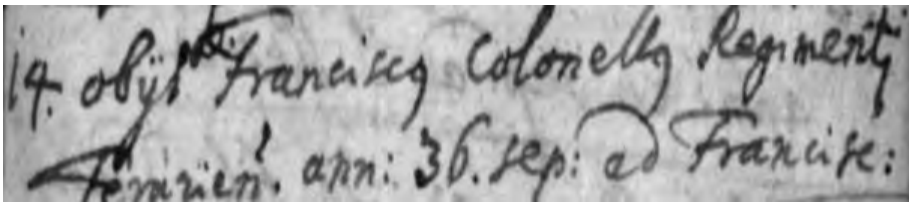 14. obijt Franciscq Colonellq Regimentj
ann: 36. sep: ad Francisc: